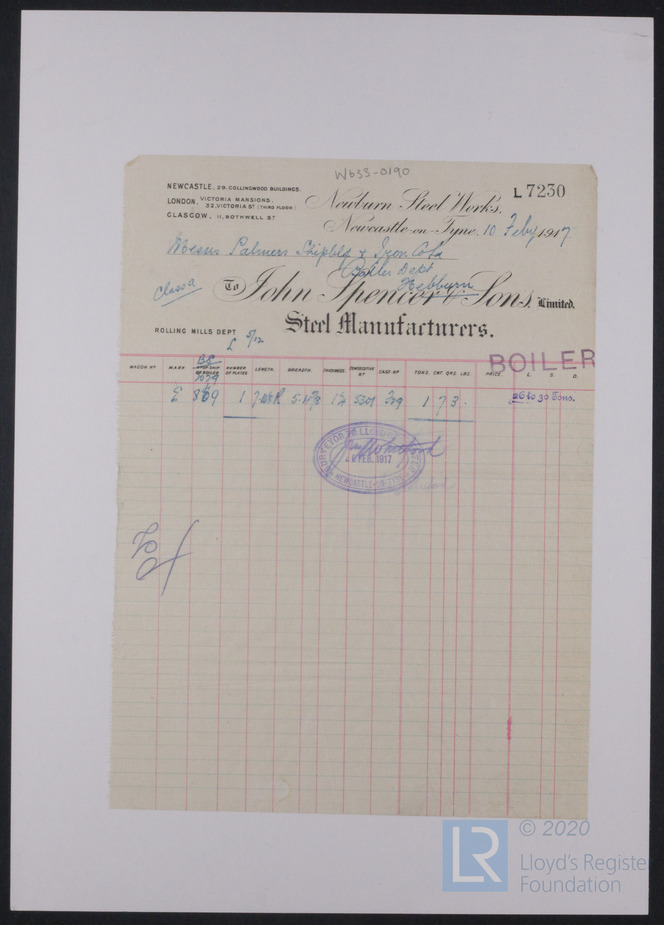 W633-0190
NEWCASTLE, 29. COLLINGWOOD BUILDINGS.
LONDON, VICTORIA MANSIONS, 32, VICTORIA ST (THIRD FLOOR)
GLASGOW, 11, BOTHWELL ST
L 7230
Newburn Steel Works,
Newcastle-on-Tyne, 10 Feby 1917
Messrs Palmers Shipbldg & Iron Co Ld
Boiler Dept
Hebburn
Class a
To John Spencer & Sons, Limited.
Steel Manufacturers.
ROLLING MILLS DEPT
£ 5/12
BOILER
WAGON Nº MARK Nº OF SHIP OR BOILER NUMBER OF PLATES LENGTH. BREADTH. THICKNESS. CONSECUTIVE Nº CAST Nº TONS. CWT. QRS. LBS. PRICE. L. S. D.
£ 869 1 5301 1 7 3
26 to 30 Tons.
SURVEYOR TO LLOYD'S
FEB. 1917
NEWCASTLE-ON-TYNE
LR
© 2020
Lloyd's Register
Foundation